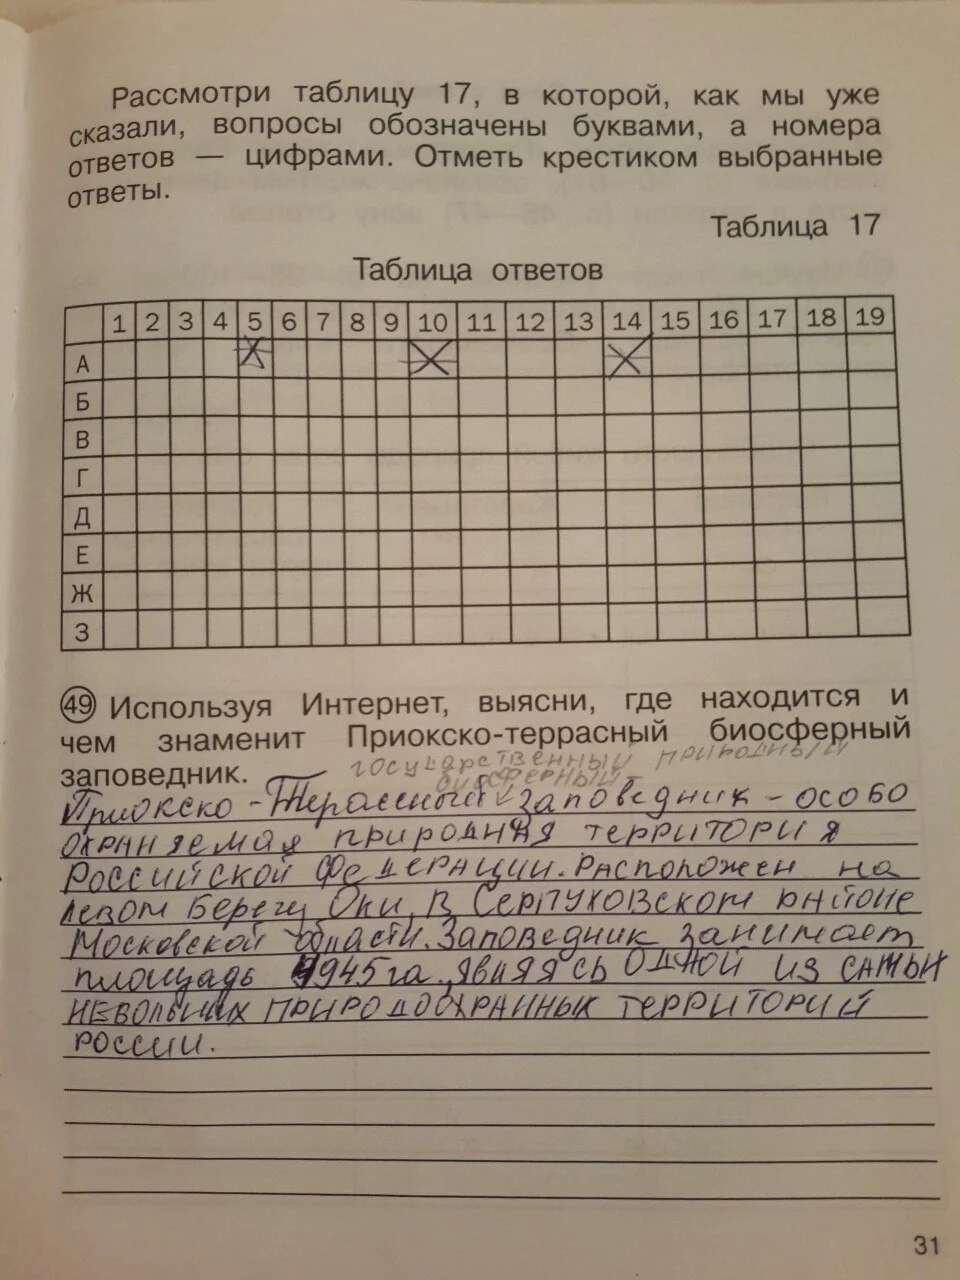 Рассмотри таблицу 17, в которой, как мы уже
сказали, вопросы обозначены буквами, а номера
ответов — цифрами. Отметь крестиком выбранные
ответы.
Таблица 17
Таблица ответов
1 2 3 4 5 6 7 8 9 10 11 12 13 14 15 16 17 18 19
А X X X
Б
В
Г
Д
Е
Ж
З
49 Используя Интернет, выясни, где находится и
чем знаменит Приокско-террасный биосферный
заповедник.
государственный природный
биосферный
Приокско-Терассный заповедник - особо
охраняемая природная территория
Российской Федерации. Расположен на
левом берегу Оки, в Серпуховском районе
Московской области. Заповедник занимает
площадь 4945 га, являясь одной из самых
небольших природоохранных территорий
России.
31